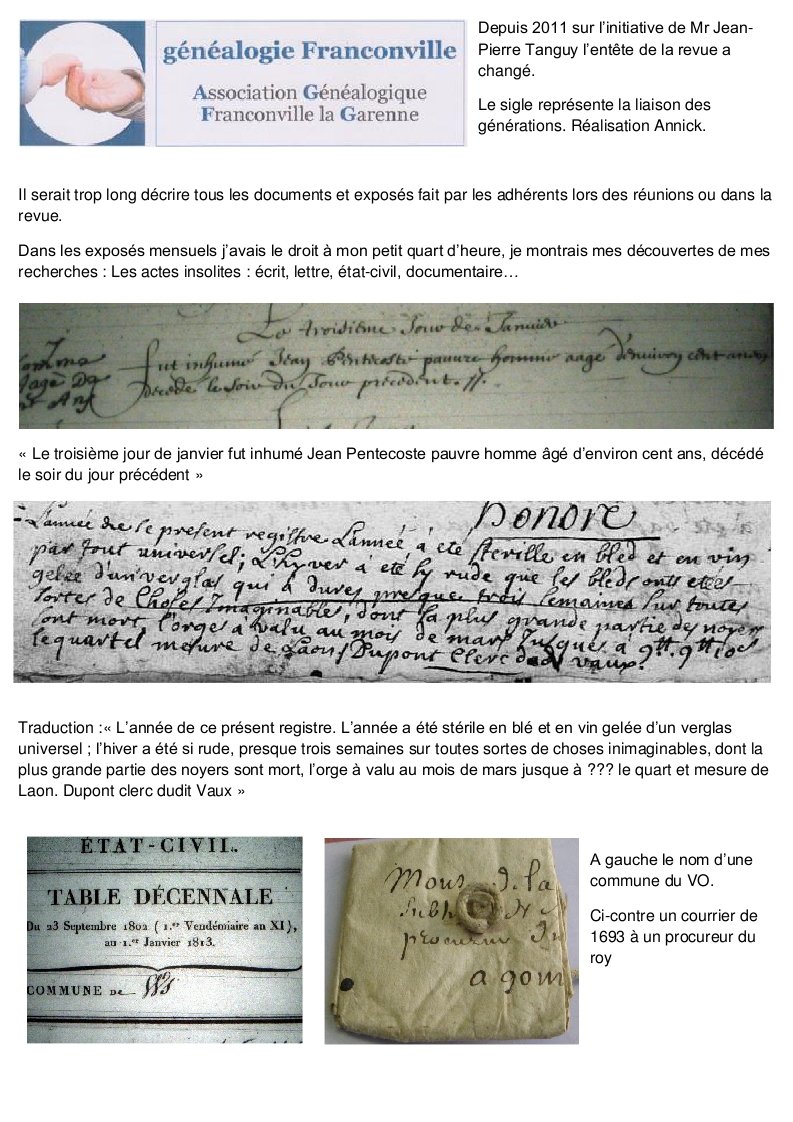 généalogie Franconville
Association Généalogique
Franconville la Garenne
Depuis 2011 sur l’initiative de Mr Jean-
Pierre Tanguy l’entête de la revue a
changé.
Le sigle représente la liaison des
générations. Réalisation Annick.
Il serait trop long décrire tous les documents et exposés fait par les adhérents lors des réunions ou dans la
revue.
Dans les exposés mensuels j’avais le droit à mon petit quart d’heure, je montrais mes découvertes de mes
recherches : Les actes insolites : écrit, lettre, état-civil, documentaire…
Le troisième Jour de Janvier
fut inhumé Jean Pentecoste pauvre homme aagé d'environ cent ans
decedé le soir du Jour précédent.
« Le troisième jour de janvier fut inhumé Jean Pentecoste pauvre homme âgé d’environ cent ans, décédé
le soir du jour précédent »
Donore
L'année de ce present registre L'année à été sterille en bled et en vin
par tout universel; L'hyver à été sy rude que les bleds ont
gelée d'un verglas qui à durés presque trois semaines sur toutes
sortes de choses Imaginables, dont la plus grande partie des noyers
sont mort, l'orge à valu au mois de mars Jusques à
le quartel mesure de Laon Dupont Clerc vaux
Traduction :« L’année de ce présent registre. L’année a été stérile en blé et en vin gelée d’un verglas
universel ; l’hiver a été si rude, presque trois semaines sur toutes sortes de choses inimaginables, dont la
plus grande partie des noyers sont mort, l’orge à valu au mois de mars jusque à ??? le quart et mesure de
Laon. Dupont clerc dudit Vaux »
ÉTAT-CIVIL.
TABLE DÉCENNALE
Du 23 Septembre 1802 ( 1.er Vendémiaire an XI),
au 1.er Janvier 1813.
COMMUNE DE
Mons de la
procureur du
a gom
A gauche le nom d’une
commune du VO.
Ci-contre un courrier de
1693 à un procureur du
roy